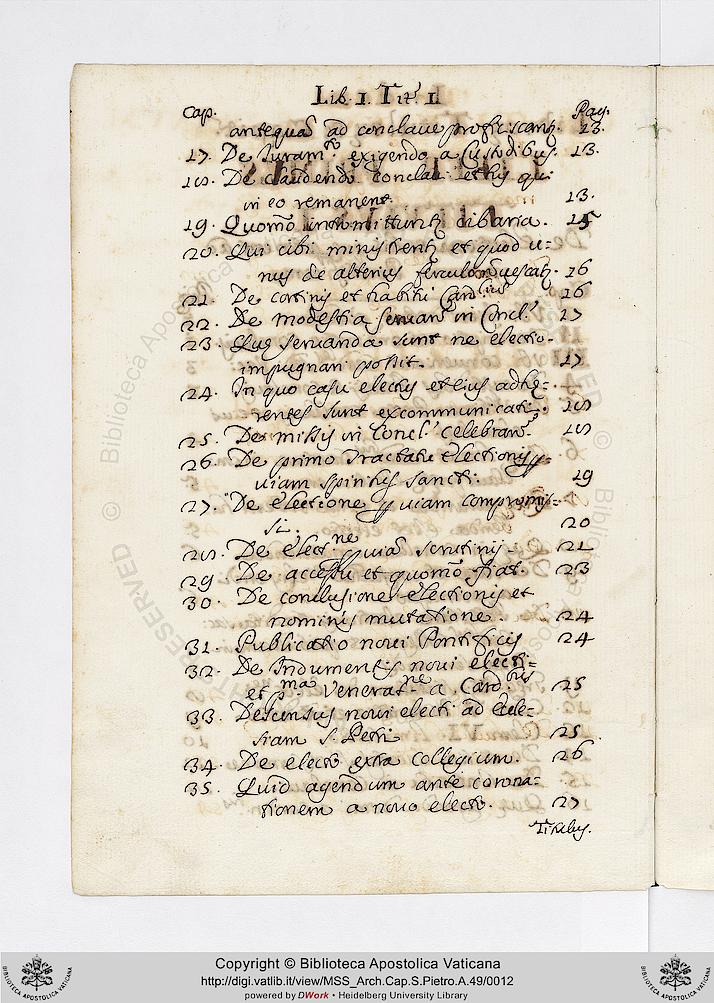 Lib. I. Tit. I.
Cap. Pag.
antequã ad conclave proficiscantʒ. 13.
17. De Juramto. exigendo a Custodibus. 13.
18. De claudendo conclavi et his qui
in eo remanent. 13.
19. Quomõ intromittuntʒ cibaria. 15
20. Qui cibi ministrentʒ et quod u=
nus de alterius ferculo 16
21. De cortinis et habitu Cardlium 16
22. De modestia servanda in Concl. 17
23. Quę servanda sunt ne electio.
impugnari possit. 17
24. In quo casu electus et eius adhę-
rentes sunt excommunicati. 18
25. De missis in Concl. celebran. 18
26. De primo Tractatu Electionis
viam spiritus sancti. 19
27. De electione viam compromis-
si. 20
28. De electne viã scrutinij. 21
29. De accessu et quomõ fiat. 23
30. De conclusione electionis et
nominis mutatione. 24
31. Publicatio novi Pontificis 24
32. De Indumentis novi electi=
et pma Veneratne a Cardbus 25
33. Descensus novi electi ad Eccle-
siam S. Petri 25
34. De electo extra collegium. 26
35. Quid agendum ante corona=
tionem a novo electo. 27
Titulus.
© Biblioteca Apostolica Vaticana
Copyright © Biblioteca Apostolica Vaticana
http://digi.vatlib.it/view/MSS_Arch.Cap.S.Pietro.A.49/0012
powered by DWork • Heidelberg University Library